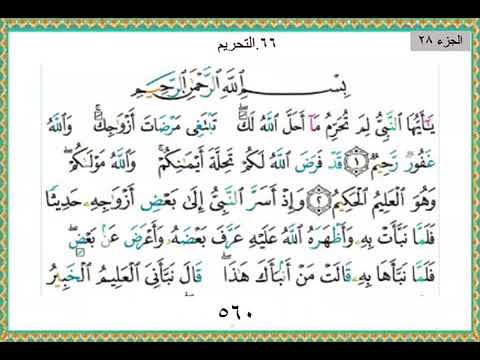 ٦٦.التحريم
الجزء ٢٨
بِسْمِ اللَّهِ الرَّحْمَٰنِ الرَّحِيمِ
يَٰٓأَيُّهَا النَّبِىُّ لِمَ تُحَرِّمُ مَآ أَحَلَّ اللَّهُ لَكَ ۖ تَبْتَغِى مَرْضَاتَ أَزْوَٰجِكَ ۚ وَاللَّهُ
غَفُورٌ رَّحِيمٌ ١ قَدْ فَرَضَ اللَّهُ لَكُمْ تَحِلَّةَ أَيْمَٰنِكُمْ ۚ وَاللَّهُ مَوْلَىٰكُمْ ۖ
وَهُوَ الْعَلِيمُ الْحَكِيمُ ٢ وَإِذْ أَسَرَّ النَّبِىُّ إِلَىٰ بَعْضِ أَزْوَٰجِهِۦ حَدِيثًا
فَلَمَّا نَبَّأَتْ بِهِۦ وَأَظْهَرَهُ اللَّهُ عَلَيْهِ عَرَّفَ بَعْضَهُۥ وَأَعْرَضَ عَنۢ بَعْضٍ ۖ
فَلَمَّا نَبَّأَهَا بِهِۦ قَالَتْ مَنْ أَنۢبَأَكَ هَٰذَا ۖ قَالَ نَبَّأَنِىَ الْعَلِيمُ الْخَبِيرُ
٥٦٠